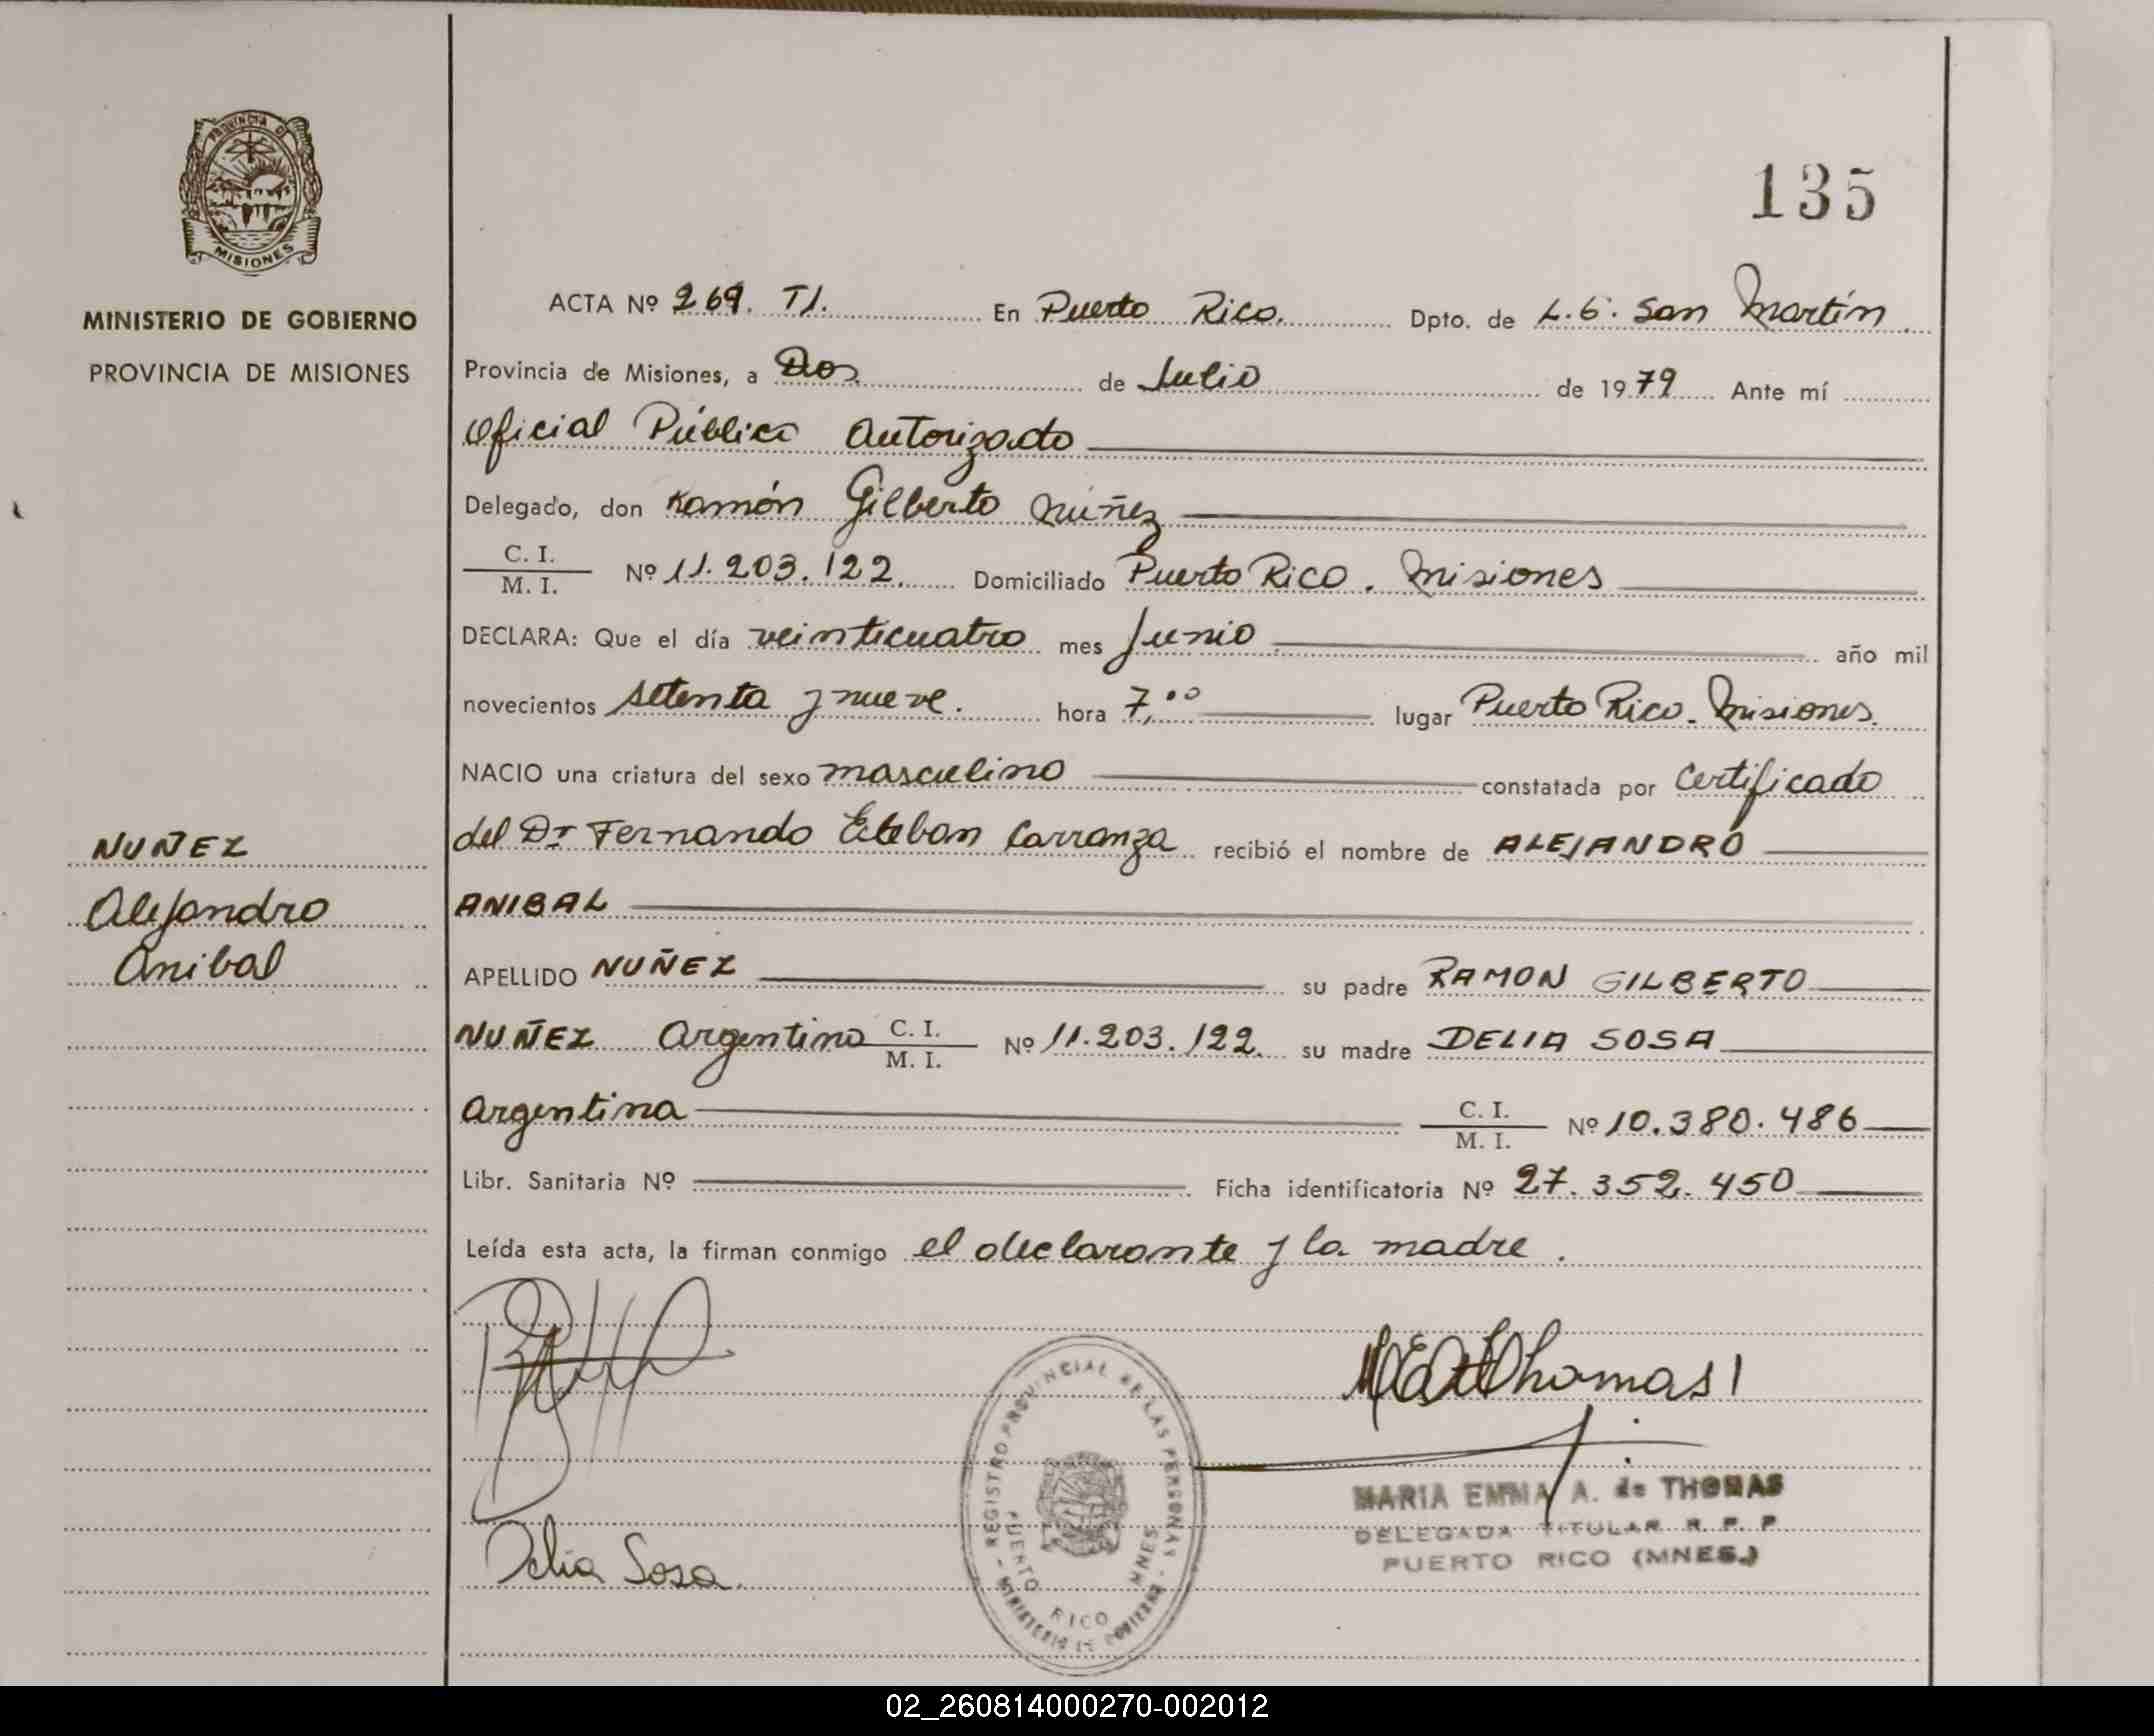 PROVINCIA DE
MISIONES
MINISTERIO DE GOBIERNO
PROVINCIA DE MISIONES
135
ACTA Nº 269. T1. En Puerto Rico. Dpto. de L.G. San Martín
Provincia de Misiones, a Dos de Julio de 1979 Ante mí
Oficial Público Autorizado
Delegado, don Ramón Gilberto Núñez
C. I.
M. I. Nº 11.203.122. Domiciliado Puerto Rico. Misiones
DECLARA: Que el día veinticuatro mes Junio año mil
novecientos setenta y nueve. hora 7,00 lugar Puerto Rico. Misiones.
NACIO una criatura del sexo masculino constatada por Certificado
del Dr Fernando Esteban Carranza recibió el nombre de ALEJANDRO
ANIBAL
NUÑEZ
Alejandro
Anibal
APELLIDO NUÑEZ su padre RAMON GILBERTO
NUÑEZ Argentino C. I.
M. I. Nº 11.203.122. su madre DELIA SOSA
Argentina C. I.
M. I. Nº 10.380.486
Libr. Sanitaria Nº Ficha identificatoria Nº 27.352.450
Leída esta acta, la firman conmigo el declarante y la madre.
Thomas
MARIA EMMA A. de THOMAS
DELEGADA TITULAR R. P. P
PUERTO RICO (MNES.)
REGISTRO PROVINCIAL DE LAS PERSONAS - MINISTERIO DE GOBIERNO -
PUERTO RICO MNES
Delia Sosa.
02_260814000270-002012